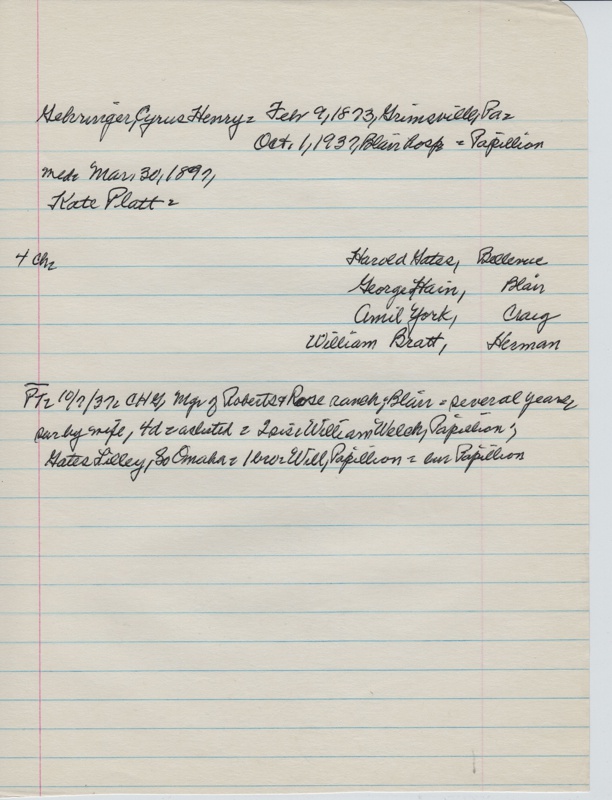 Gehringer, Cyrus Henry = Feb 9, 1873, Grimsville, Pa =
Oct. 1, 1937, Blair hosp = Papillion
md = Mar. 30, 1897,
Kate Platt =
4 ch =
Harold Gates, Bellevue
George Hain, Blair
Amil York, Craig
William Bratt, Herman
PT = 10/7/37 = CHG, Mgr of Roberts & Rose ranch, Blair = several years,
sur by wife, 4d = as listed = 2 sis = William Welch, Papillion;
Gates Lilley, So Omaha = 1 bro = Will, Papillion = bur Papillion